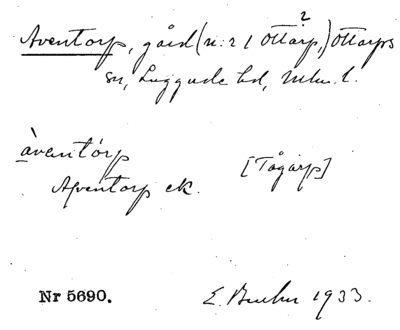 Aventorp, gård (n:r 1 Ottarp,?) Ottarps
sn, Luggude hd, Mlm. l.
àventórp
Afventorp ek. [Tågarp]
Nr 5690. E. 1933.